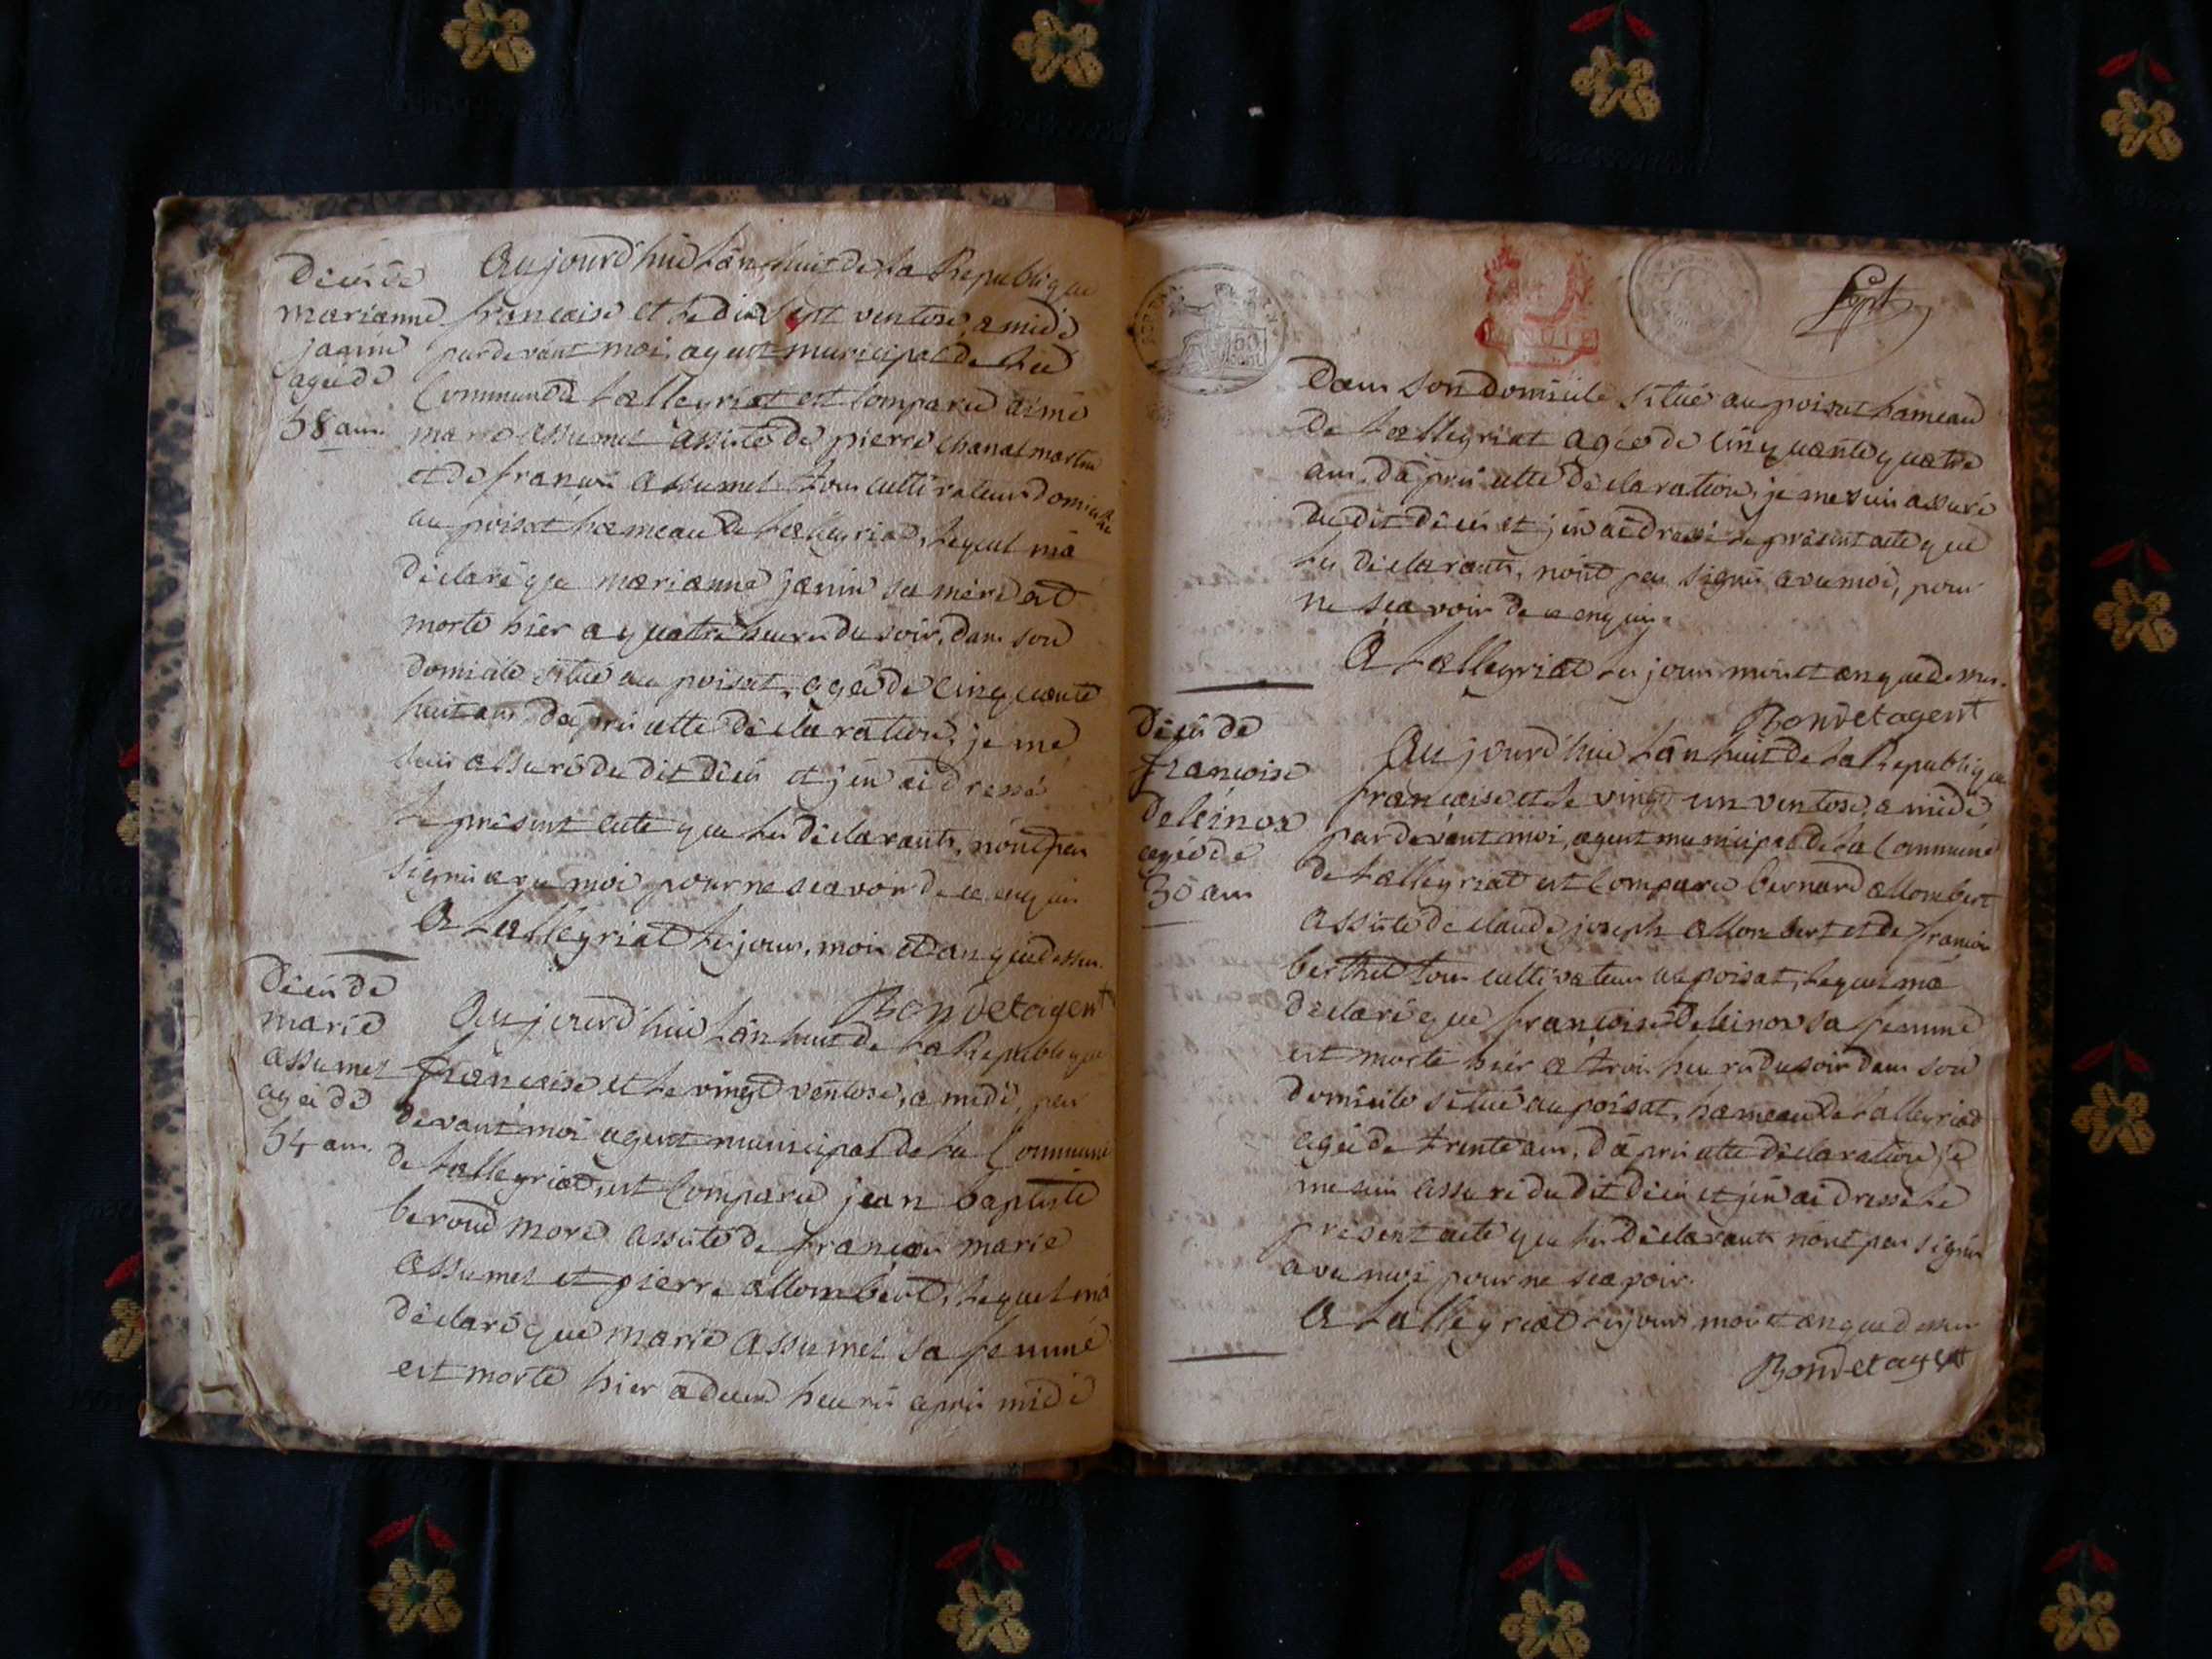 décès de
marianne
janin
agée de
58 ans
Aujourd'hui l'an huit de la Republique
francaise et le dix sept ventose, a midi
pardevant moi, agent municipal de la
Commune de Lalleyriat est comparu aimé
marie assumel assisté de pierre chanal martin
et de francois assumel tous cultivateurs domiciliés
au poisat hameau de Lalleyriat, lequel m'a
déclaré que marianne janin sa mere est
morte hier a quatre heures du soir, dans son
domicile situé au poisat, agée de cinquante
huit ans, d'après cette déclaration, je me
suis assuré du dit décès et j'en ai dressé
le présent acte que les déclarants, n'ont pas
signés avec moi pour ne scavoir de ce enquis
A Lalleyriat les jours, mois et an que dessus.
Bondet agent
décès de
marie
assumel
agée de
54 ans
Aujourd'hui l'an huit de la Republique
francaise et le vingt ventose, a midi, par
devant moi agent municipal de la Commune
de Lalleyriat, est comparu jean baptiste
beroud more assisté de francois marie
assumel et pierre allombert, lequel m'a
déclaré que marie assumel sa femme
est morte hier a deux heures après midi
60
Sept
dans son domicile situé au poisat hameau
de Lalleyriat agée de cinquante quatre
ans, d'après cette déclaration, je me suis assuré
du dit décès et j'en ai dressé le présent acte que
les déclarants, n'ont pas signés avec moi, pour
ne scavoir de ce enquis
A Lalleyriat les jours mois et an que dessus.
Bondet agent
décès de
francoise
deleinox
agée de
30 ans
Aujourd'hui l'an huit de la Republique
francaise et le vingt un ventose, a midi
pardevant moi, agent municipal de la Commune
de Lalleyriat est comparu bernard allombert
assisté de claude joseph allombert et de francois
berthet tous cultivateurs au poisat, lequel m'a
déclaré que francoise deleinox sa femme
est morte hier a trois heures du soir dans son
domicile situé au poisat, hameau de Lalleyriat
agée de trente ans, d'après cette déclaration je
me suis assuré du dit décès et j'en ai dressé le
présent acte que les déclarants n'ont pas signés
avec moi pour ne scavoir.
A Lalleyriat les jours mois et an que dessus
Bondet agent